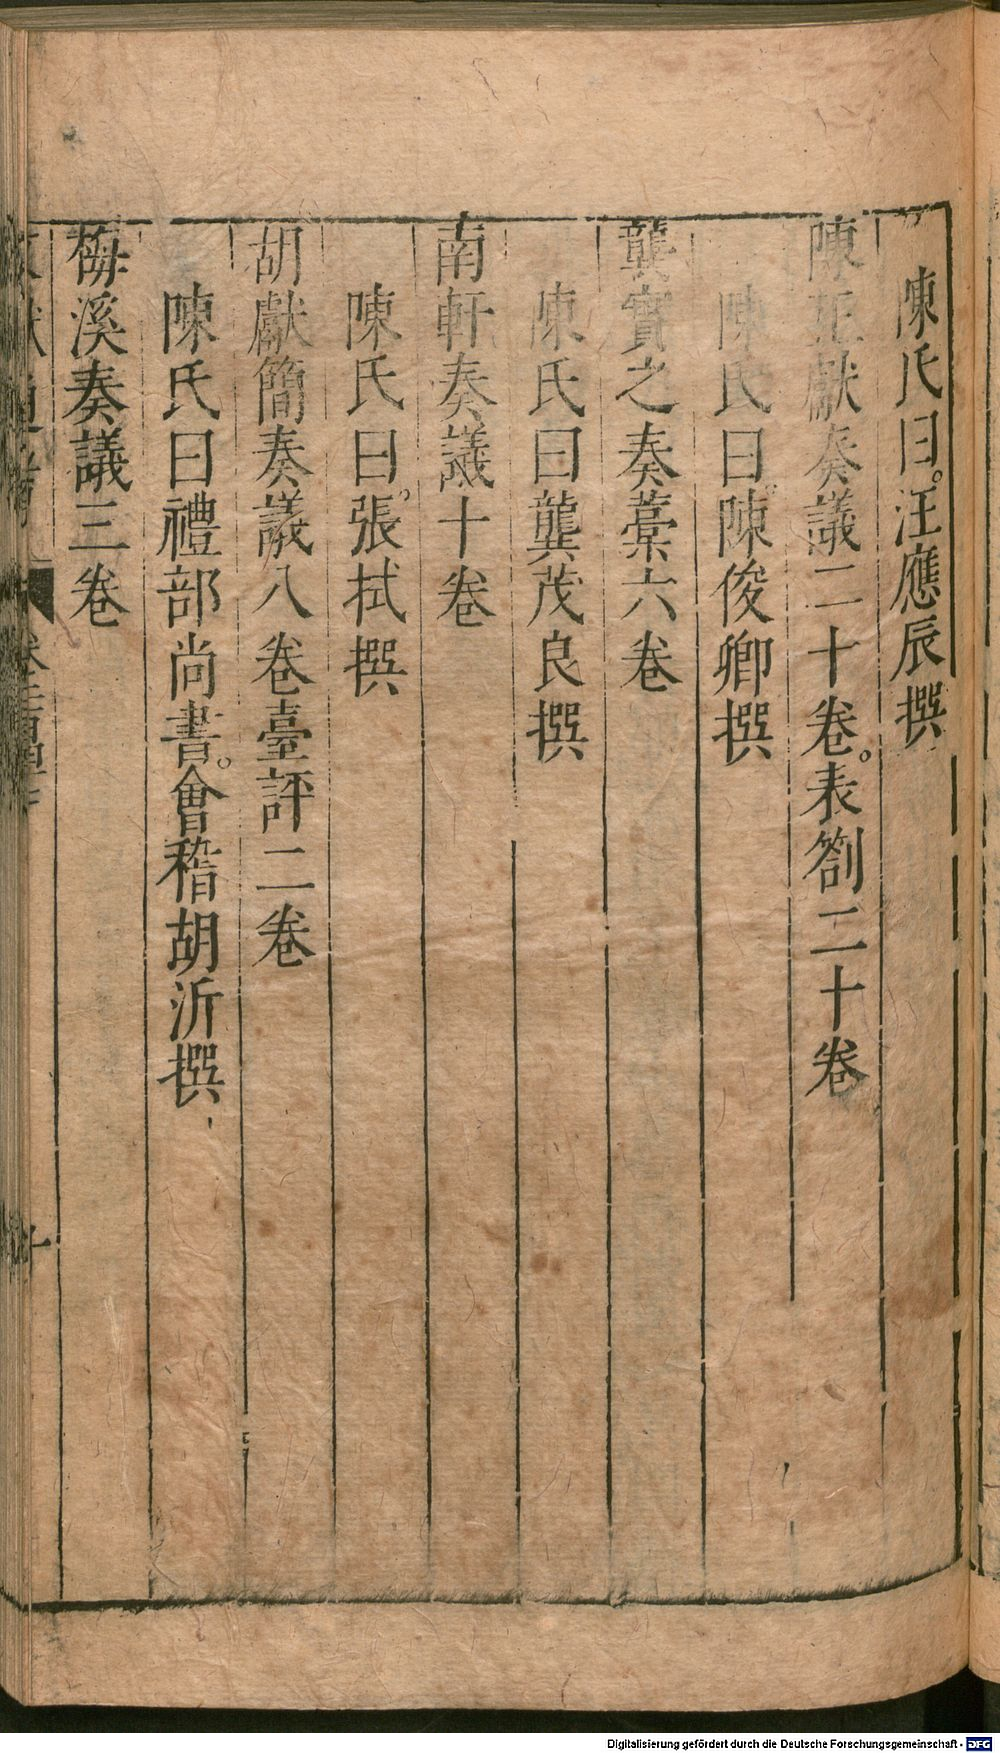 陳氏曰。汪應辰撰
陳正獻奏議二十卷。表劄二十卷
陳氏曰。陳俊卿撰
龔實之奏藁六卷
陳氏曰龔茂良撰
南軒奏議十卷
陳氏曰。張拭撰
胡獻簡奏議八卷臺評二卷
陳氏曰禮部尚書。會稽胡沂撰
梅溪奏議三卷
Digitalisierung gefördert durch die Deutsche Forschungsgemeinschaft - DFG